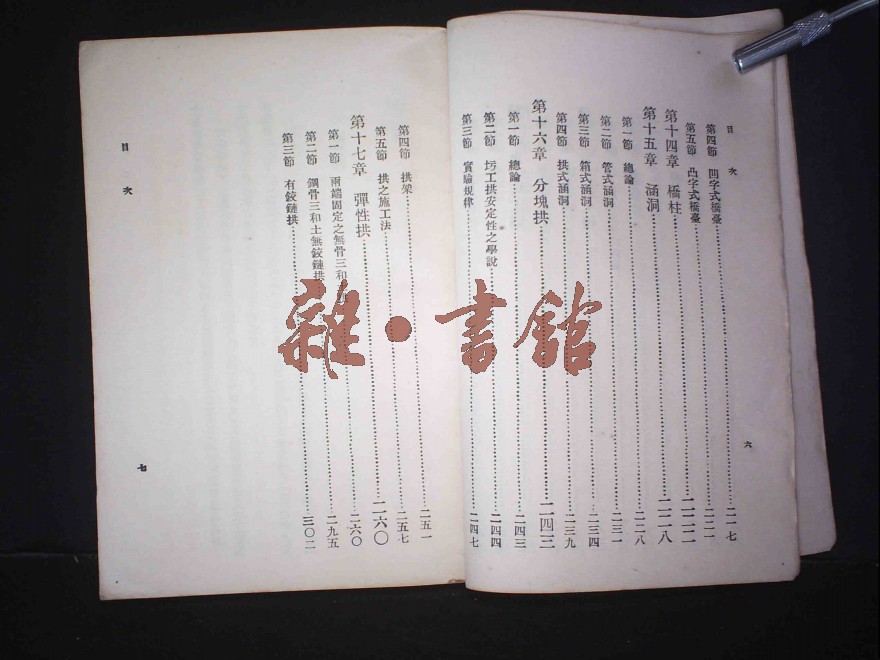 目次
第四節 凹字式橋臺⋯⋯二一七
第五節 凸字式橋臺⋯⋯二二一
第十四章 橋柱⋯⋯二二二
第十五章 涵洞⋯⋯二二八
第一節 總論⋯⋯二二八
第二節 管式涵洞⋯⋯二三一
第三節 箱式涵洞⋯⋯二三四
第四節 拱式涵洞⋯⋯二三九
第十六章 分塊拱⋯⋯二四三
第一節 總論⋯⋯二四三
第二節 圬工拱安定性之學說⋯⋯二四四
第三節 實驗規律⋯⋯二四七
六
第四節 拱架⋯⋯二五一
第五節 拱之施工法⋯⋯二五七
第十七章 彈性拱⋯⋯二六〇
第一節 兩端固定之無骨三和⋯⋯二六〇
第二節 鋼骨三和土無鉸鏈拱⋯⋯二九五
第三節 有鉸鏈拱⋯⋯三〇二
目次
七
雜·書館